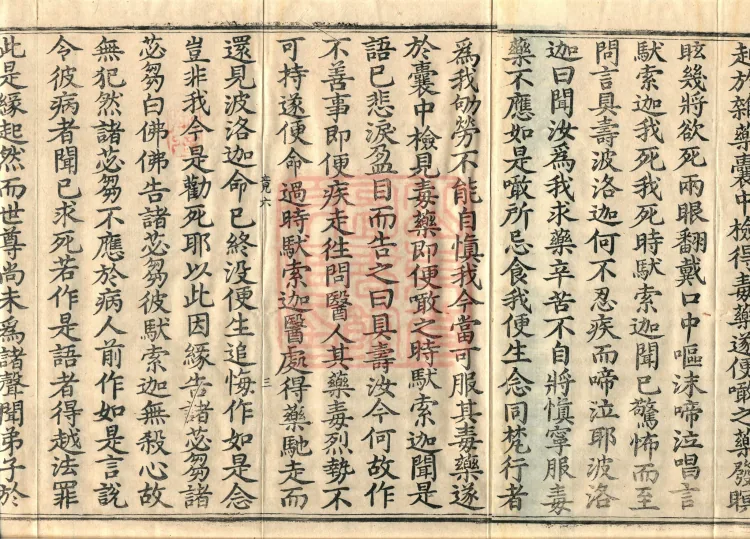 起於雜藥囊中檢得毒藥遂便噉之藥發瞑
眩幾將欲死兩眼翻戴口中嘔沫啼泣唱言
馱索迦我死我死時馱索迦聞已驚怖而至
問言具壽波洛迦何不忍疾而啼泣耶波洛
迦曰聞汝爲我求藥辛苦不自將慎寧服毒
藥不應如是噉所忌食我便生念同梵行者
爲我劬勞不能自慎我今當可服其毒藥遂
於囊中檢見毒藥即便噉之時馱索迦聞是
語已悲淚盈目而告之曰具壽汝今何故作
不善事即便疾走往問醫人其藥毒烈勢不
可持遂便命過時馱索迦醫處得藥馳走而
竟六
三
還見波洛迦命已終没便生追悔作如是念
豈非我今是勸死耶以此因緣告諸苾芻諸
苾芻白佛佛告諸苾芻彼馱索迦無殺心故
無犯然諸苾芻不應於病人前作如是言說
令彼病者聞已求死若作是語者得越法罪
此是緣起然而世尊尚未爲諸聲聞弟子於